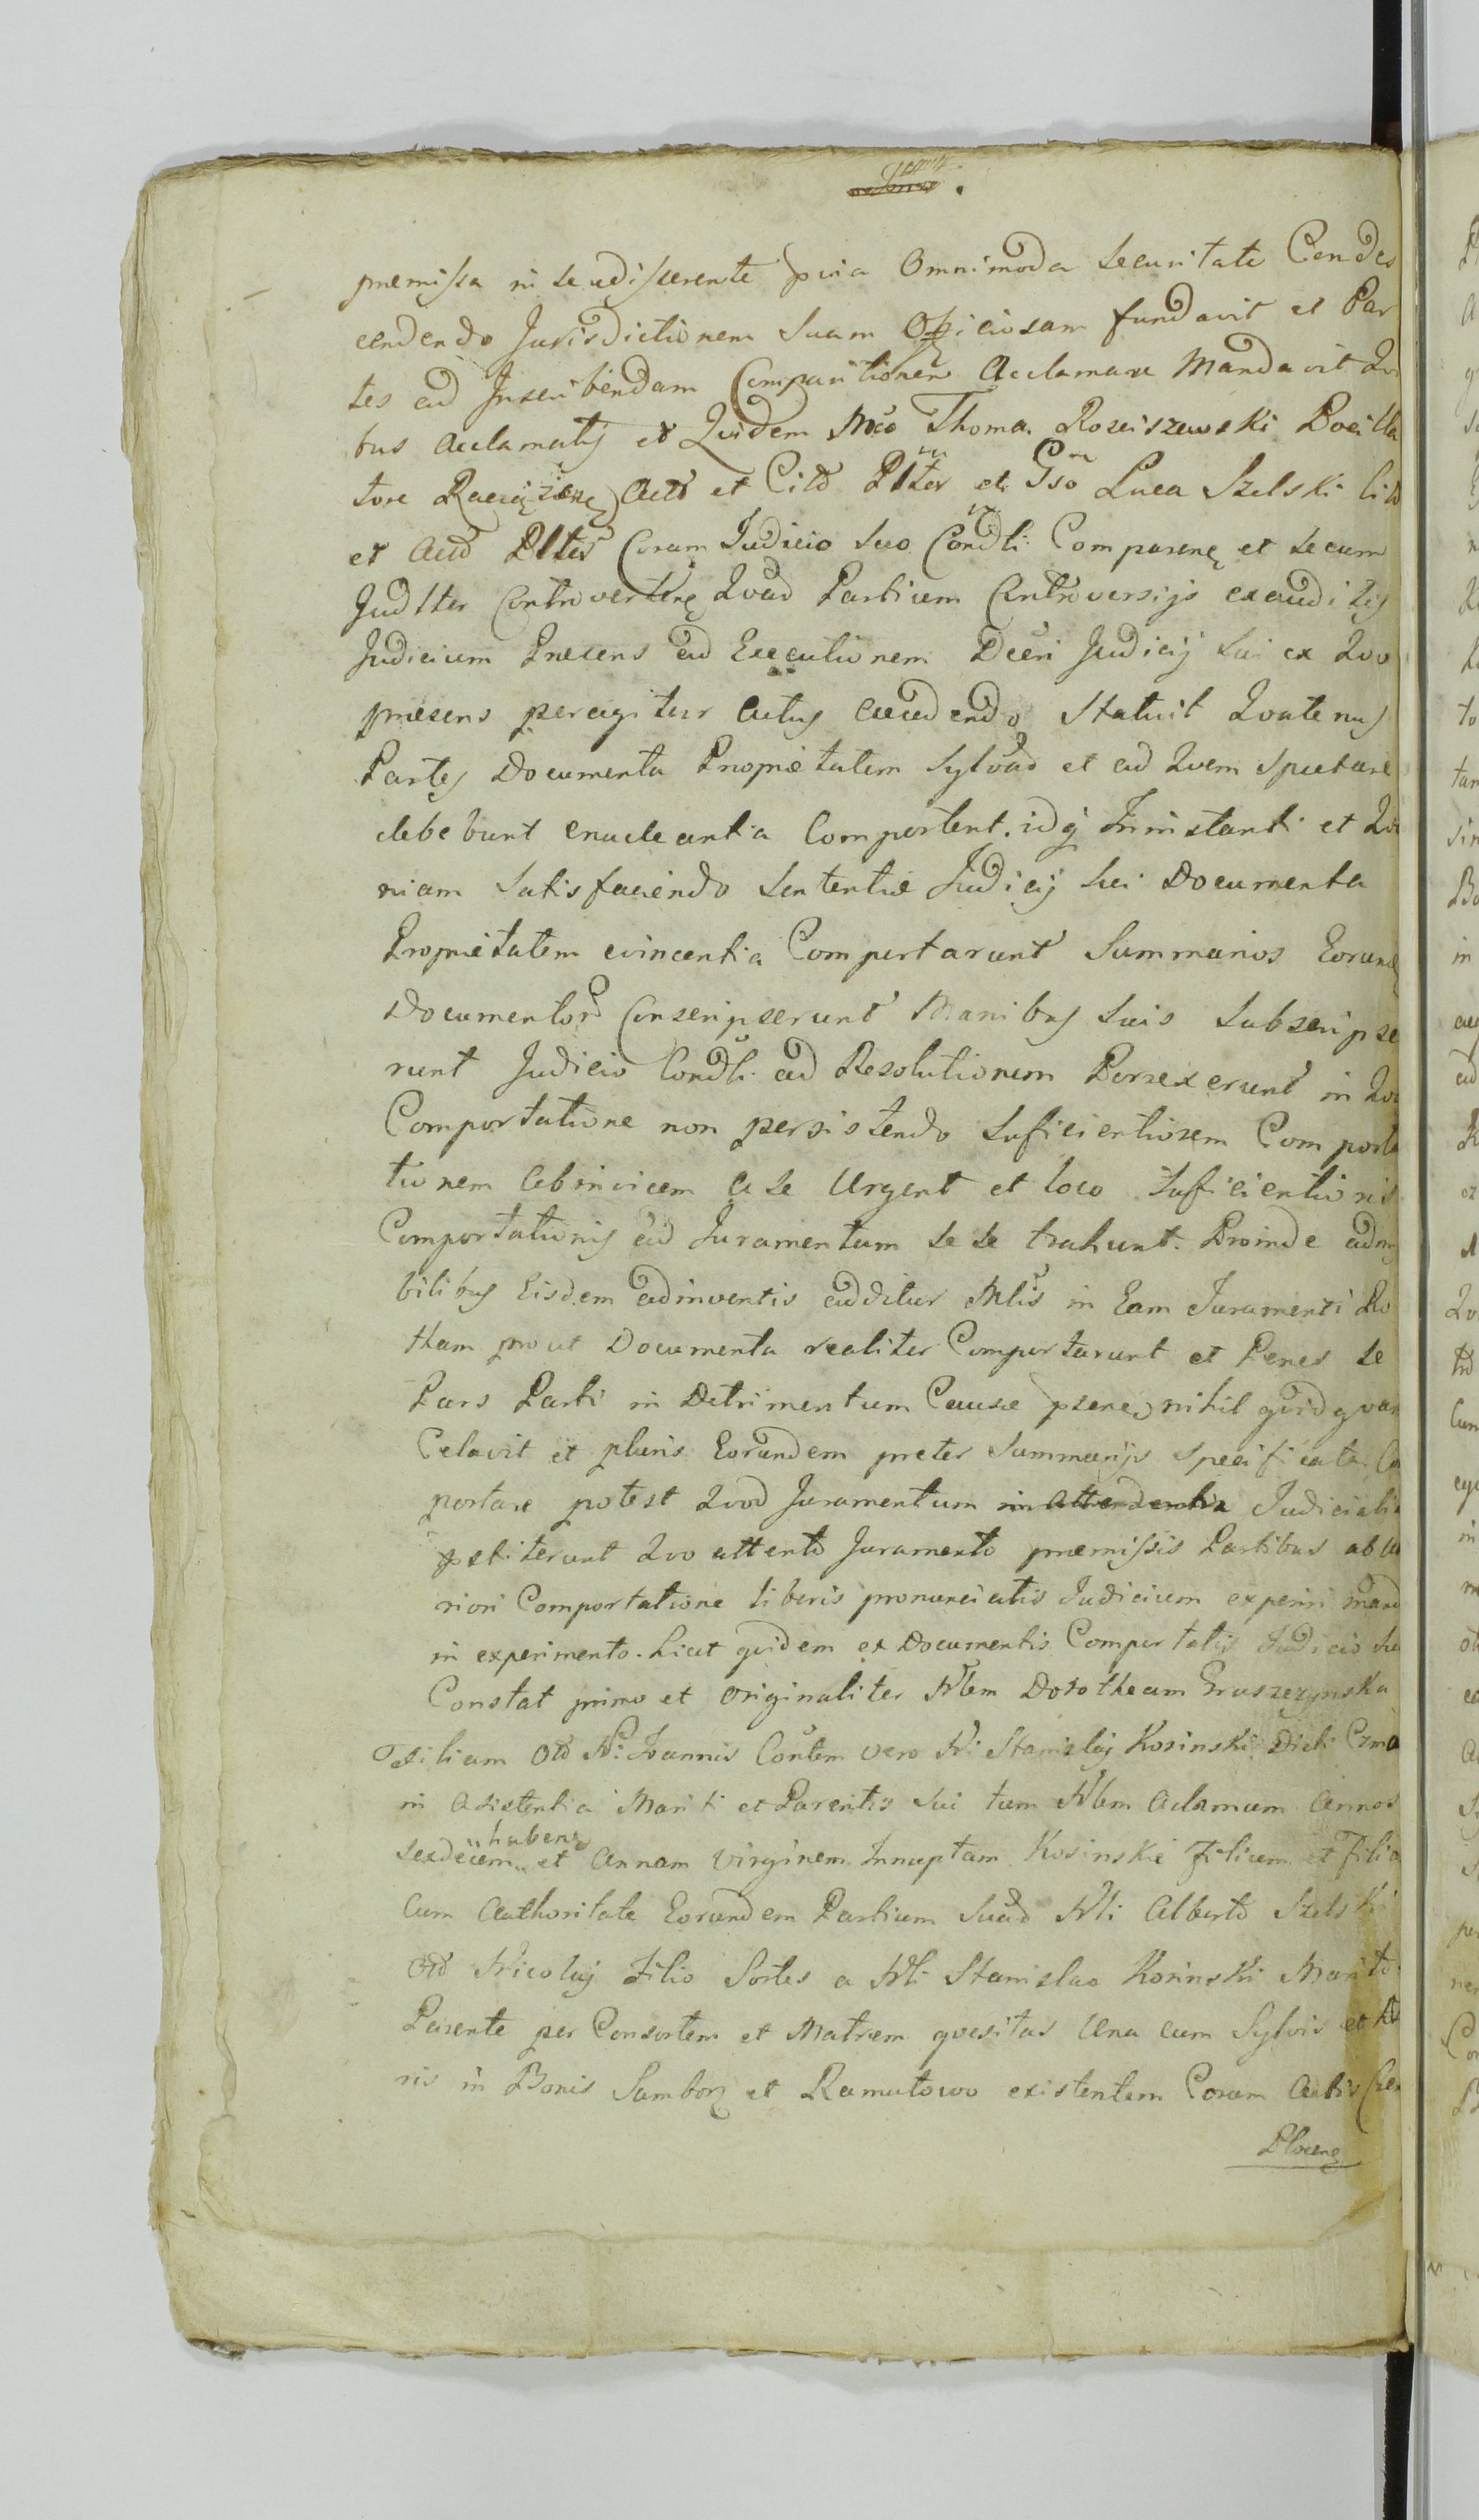 premissa in se edisserente pvia Omnimoda Securitate Condes
cendendo Jurisdictionem Suam Officiosam fundavit et Par
tes ad Inscribendam Comparitionem Acclamare Mandavit Qui
bus Acclamatis et Qvidem Mco Thoma Rosciszewski Pocilla
tore Raciązenę Actō et Citō Plter et Gso Luca Szelski Citō
et Actō Plter Coram Judicio Suo Condli Comparenę et Secum
Judlter Controvertenę Qvarū Partium Controversijs exauditis
Judicium Presens ad Executionem Decri Judicij Sui ex Qvo
præsens peragitur Actus Accedendo Statuit Qvatenus
Partes Documenta Proprietatem Sylvarū et ad Qvem Spectare
debebunt enucleantia Comportent. idq Ininstanti et Qvo
niam Satisfaciendo Sententiæ Judicij Sui Documenta
Proprietatem evincentia Comportarunt Summarios Eorund
Documentorū Conscripserunt Manibus Suis Subscripse
runt Judicio Condli ad Resolutionem Porrexerunt in Qva
Comportatione non persistendo Suficientiorem Comporta
tionem abinvicem a Se Urgent et loco Suficientioris
Comportationis ad Juramentum Se Se trahunt. Proinde adm
bilibus Eisdem adinventis additur Mlis in Eam Juramenti Ro
tham prout Documenta realiter Comportarunt et Penes Se
Pars Parti in Detrimentum Causæ psenę nihil qvidqvam
Celavit et pluris Eorundem preter Summarijs Specificata Co
portare potest Qvod Juramentum in attendentia Judicialia
pstiterunt Qvo attento Juramento præmissis Partibus ab Ul
riori Comportatione liberis pronunciatis Judicium experiri mand
in experimento. Licet qvidem ex Documentis Comportatis Judicio Su
Constat primo et originaliter Nblem Dorotheam Gruszczynska
Filiam Otō N: Joannis Contem vero N: Stanislaj Kosinski Dicti Czma
in Asistentia Mariti et Parentis Sui tum Nblem Adamum Annos
Sexdecim habenę et Annam Virginem Innuptam Kosinskie Filium et Filia
Cum Authoritate Eorundem Partium Suarū Nbli Alberto Szelski
Otō Nicolaj Filio Sortes a Nbli Stanislao Kosinski Marito
Parente per Consortem et Matrem qvesitas Una cum Sylvis et
ris in Bonis Samborz et Ramutowo existentem Coram Actis
Plocenę